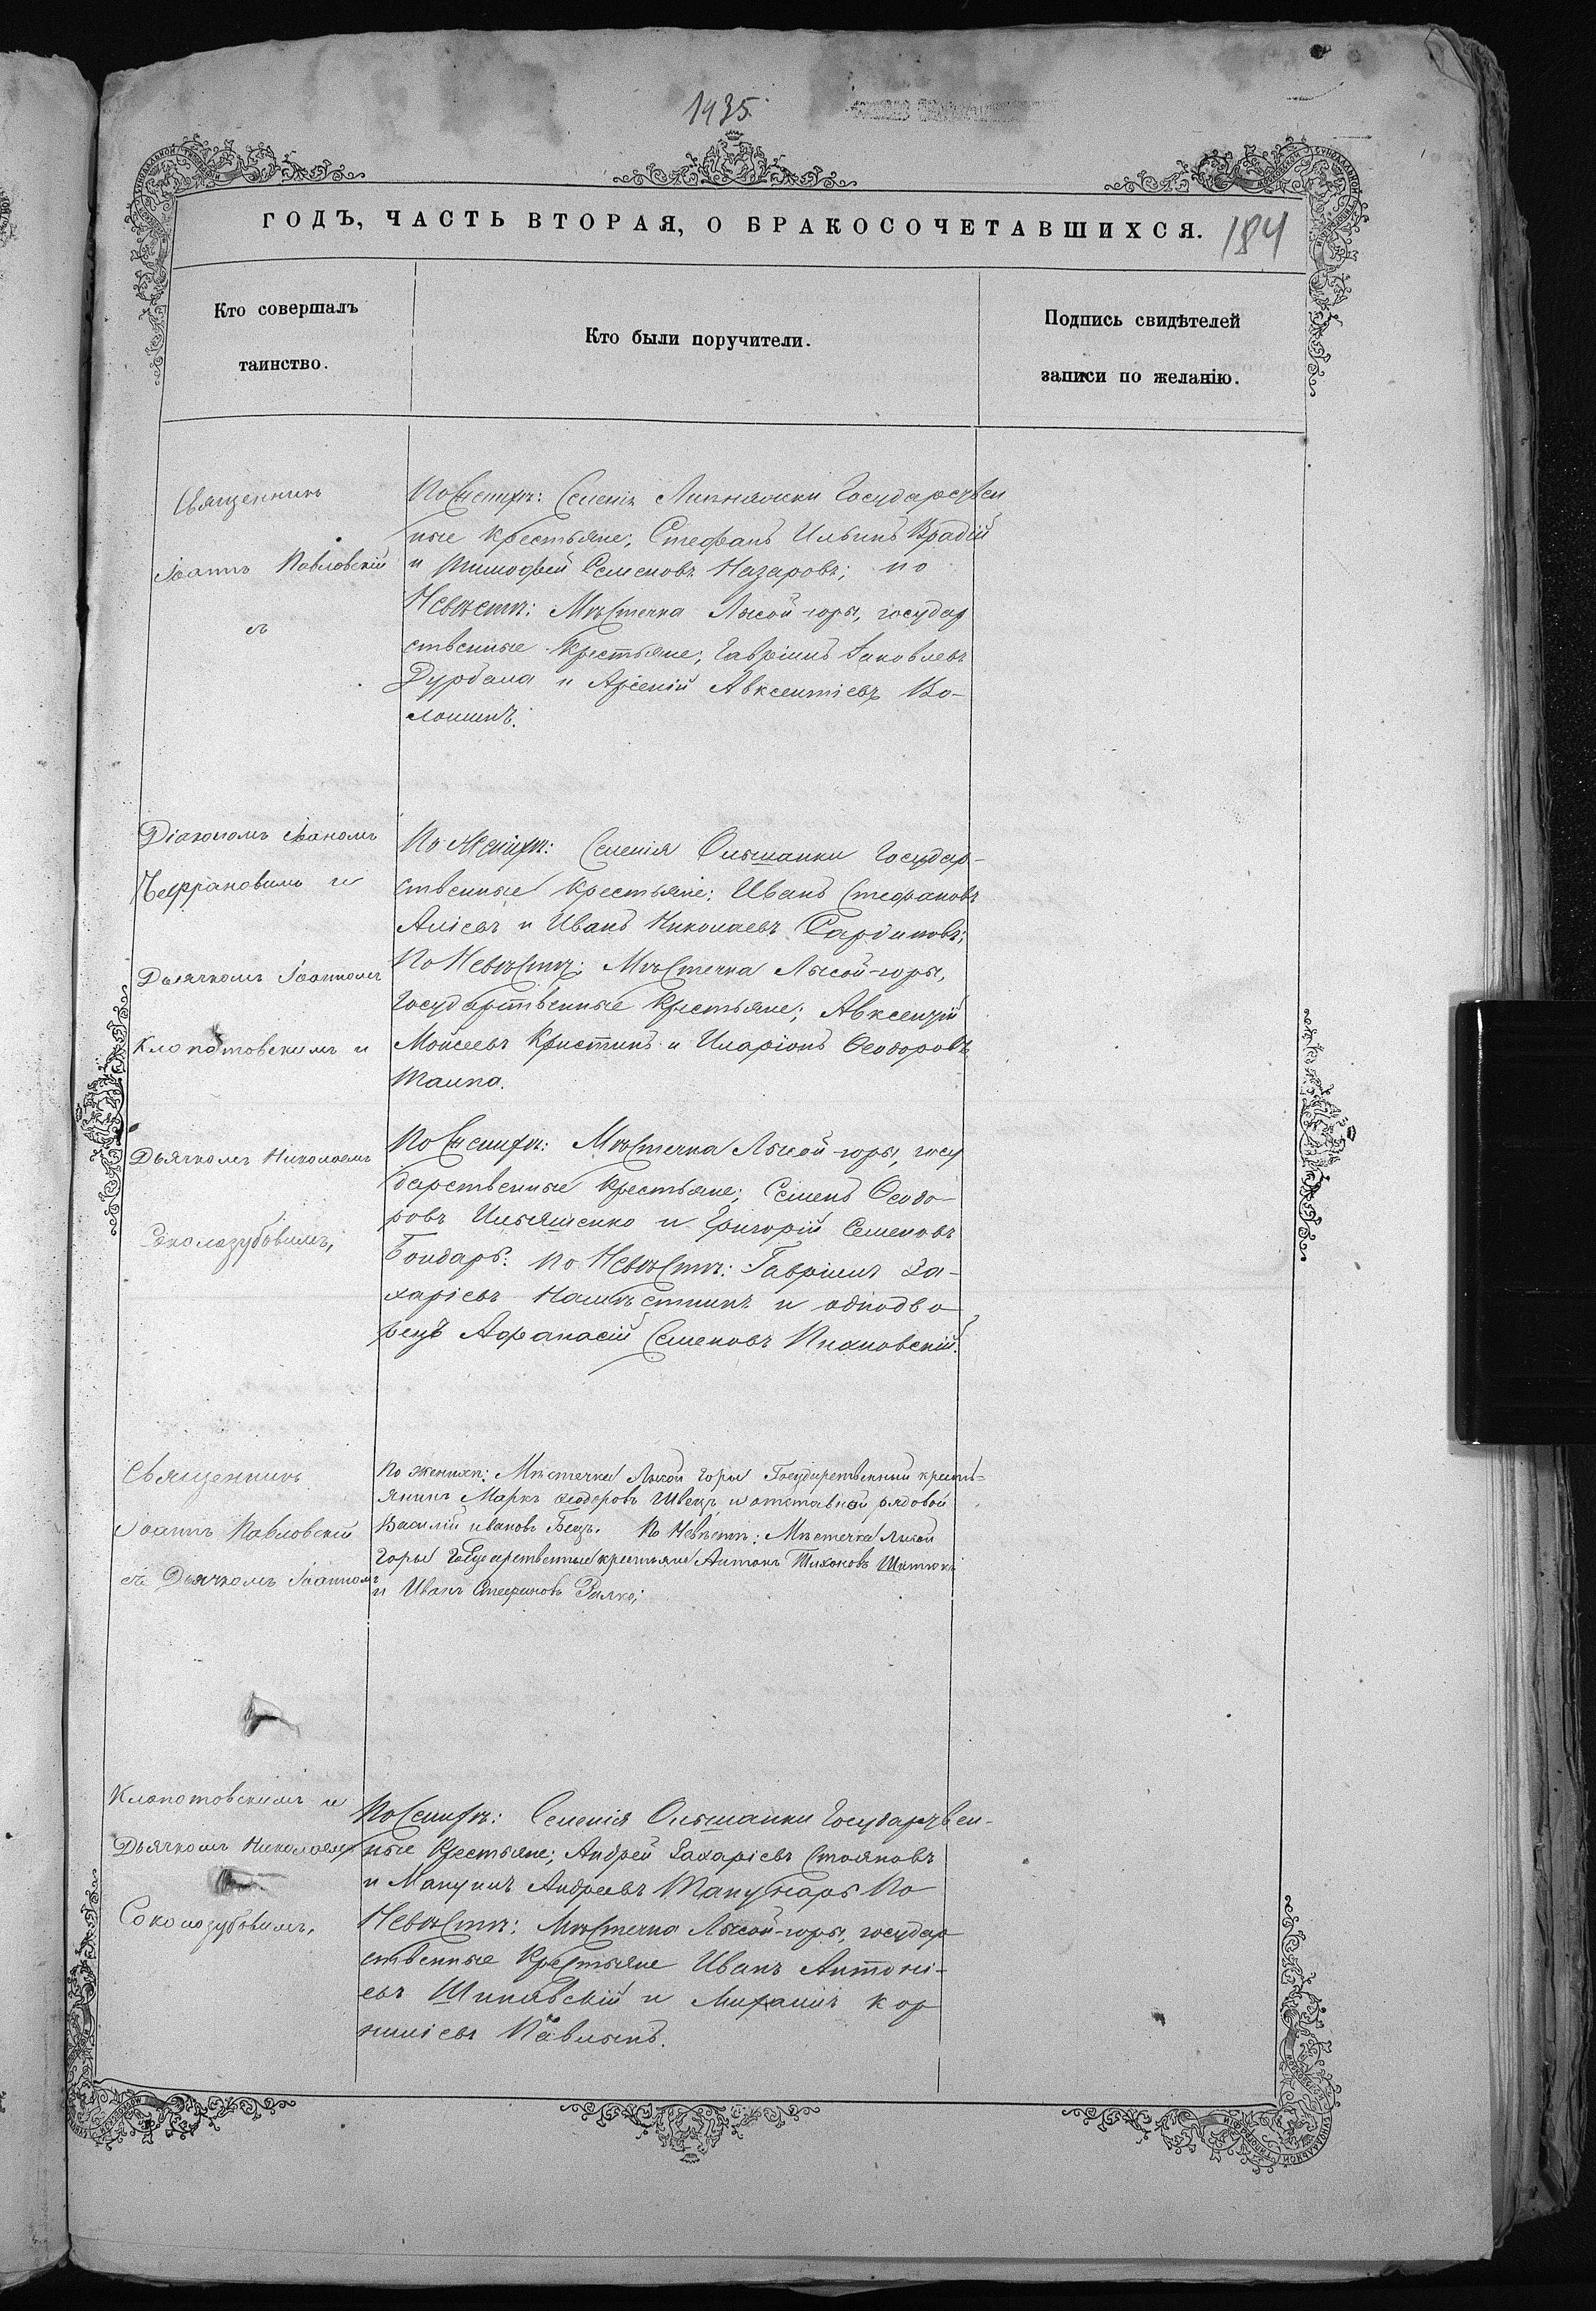 1435.
ГОДЪ, ЧАСТЬ ВТОРАЯ, О БРАКОСОЧЕТАВШИХСЯ.
184
Кто совершалъ
таинство.
Кто были поручители.
Подпись свидѣтелей
записи по желанію.
Священникъ
Іоаннъ Павловскій
съ
По Жених​ѣ: Селенія Липняжки Государствен
ные крестьяне; Стефанъ Ильинъ Врадій
и Тимофей Семеновъ Назаровъ; по
Невѣстѣ: Мѣстечка Лысой-горы, государ
ственные крестьяне; Гавріилъ Іаковлевъ
Дурбала и Арсеній Авксентіевъ Во-
лошинъ.
Діакономъ Іваномъ
и
Дьячкомъ Іоанномъ
Клопотовскимъ и
По Женихѣ: Селенія Ольшанки Государ-
ственные крестьяне; Иванъ Стефановъ
Аліевъ и Иванъ Николаевъ
По Невѣстѣ: Мѣстечка Лысой-горы,
Государственные крестьяне; Авксентій
Моисеевъ Кристинъ и Иларіонъ Ѳеодоровъ
Таипа.
Дьячкомъ Николаемъ
Соколозубовимъ,
По Женихѣ: Мѣстечка Лысой-горы, госу
дарственные крестьяне; Семенъ Ѳеодо-
ровъ Ильяшенко и Григорій Семеновъ
Бондарь. По Невѣстѣ: Гавріилъ За-
харіевъ Намѣстникъ и однодво
рецъ Афанасій Семеновъ Пиановскій.
Священникъ
Іоаннъ Павловскій
съ Дьячкомъ Іоанномъ
По женихѣ: Мѣстечка Лысой Горы Государственный кресть-
янинъ Маркъ Ѳеодоровъ Швецъ и отставной рядовой
Василій Ивановъ Бецъ. По Невѣстѣ: Мѣстечка Лысой
Горы Государственные крестьяне Антонъ Тихоновъ
и Иванъ Стефановъ
Клопотовскимъ и
Дьячкомъ Николаемъ
Соколозубовимъ,
По Женихѣ: Селенія Ольшанки Государствен-
ные Крестьяне; Андрей Захаріевъ Стояновъ
и Андреевъ По
Невѣстѣ: Мѣстечка Лысой-горы, государ
ственные Крестьяне Иванъ Антоні-
евъ Шипявскій и Михаилъ Кор
ниліевъ Павлыкъ.